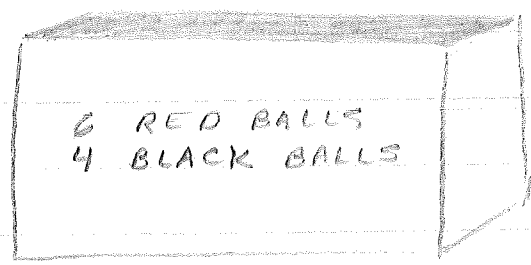 6 RED BALLS
4 BLACK BALLS